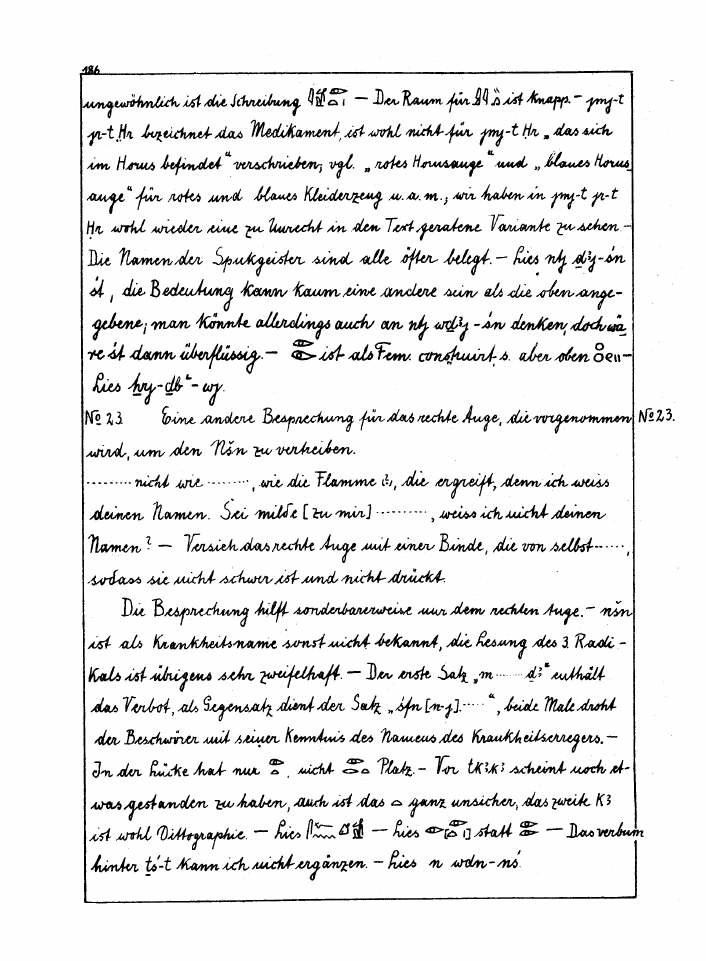 186
ungewöhnlich ist die Schreibung — Der Raum für ist knapp. – jmj-t
jr-t Ḥr bezeichnet das Medikament, ist wohl nicht für jmj-t Ḥr „das sich
im Horus befindet“ verschrieben; vgl. „rotes Horusauge“ und „blaues Horus
auge“ für rotes und blaues Kleiderzeug u. a. m.; wir haben in jmj-t jr-t
Ḥr wohl wieder eine zu Unrecht in den Text geratene Variante zu sehen –
Die Namen der Spukgeister sind alle öfter belegt. – Lies ntj ḏꜣj-śn
śt, die Bedeutung kann kaum eine andere sein als die oben ange-
gebene; man könnte allerdings auch an ntj wḏꜣj-śn denken, doch wä
re śt dann überflüssig. – ist als Fem. construirt, s. aber oben –
Lies ẖrj-ḏbꜥ-wj.
No 23. Eine andere Besprechung für das rechte Auge, die vorgenommen No 23.
wird, um den Nšn zu vertreiben.
......... nicht wie ........, wie die Flamme, die ergreift, denn ich weiss
deinen Namen. Sei milde [zu mir] .........., weiss ich nicht deinen
Namen? — Versieh das rechte Auge mit einer Binde, die von selbst......,
sodass sie nicht schwer ist und nicht drückt.
Die Besprechung hilft sonderbarerweise nur dem rechten Auge. – nšn
ist als Krankheitsname sonst nicht bekannt, die Lesung des 3. Radi-
kals ist übrigens sehr zweifelhaft. – Der erste Satz „m ...... dꜣ“ enthält
das Verbot, als Gegensatz dient der Satz „śfn [n-j].....“, beide Male droht
der Beschwörer mit seiner Kenntnis des Namens des Krankheitserregers. –
In der Lücke hat nur, nicht Platz. – Vor tkꜣkꜣ scheint noch et-
was gestanden zu haben, auch ist das ganz unsicher, das zweite kꜣ
ist wohl Dittographie. — Lies — Lies statt — Das verbum
hinter ṯś-t kann ich nicht ergänzen. – Lies n wdn-nś.